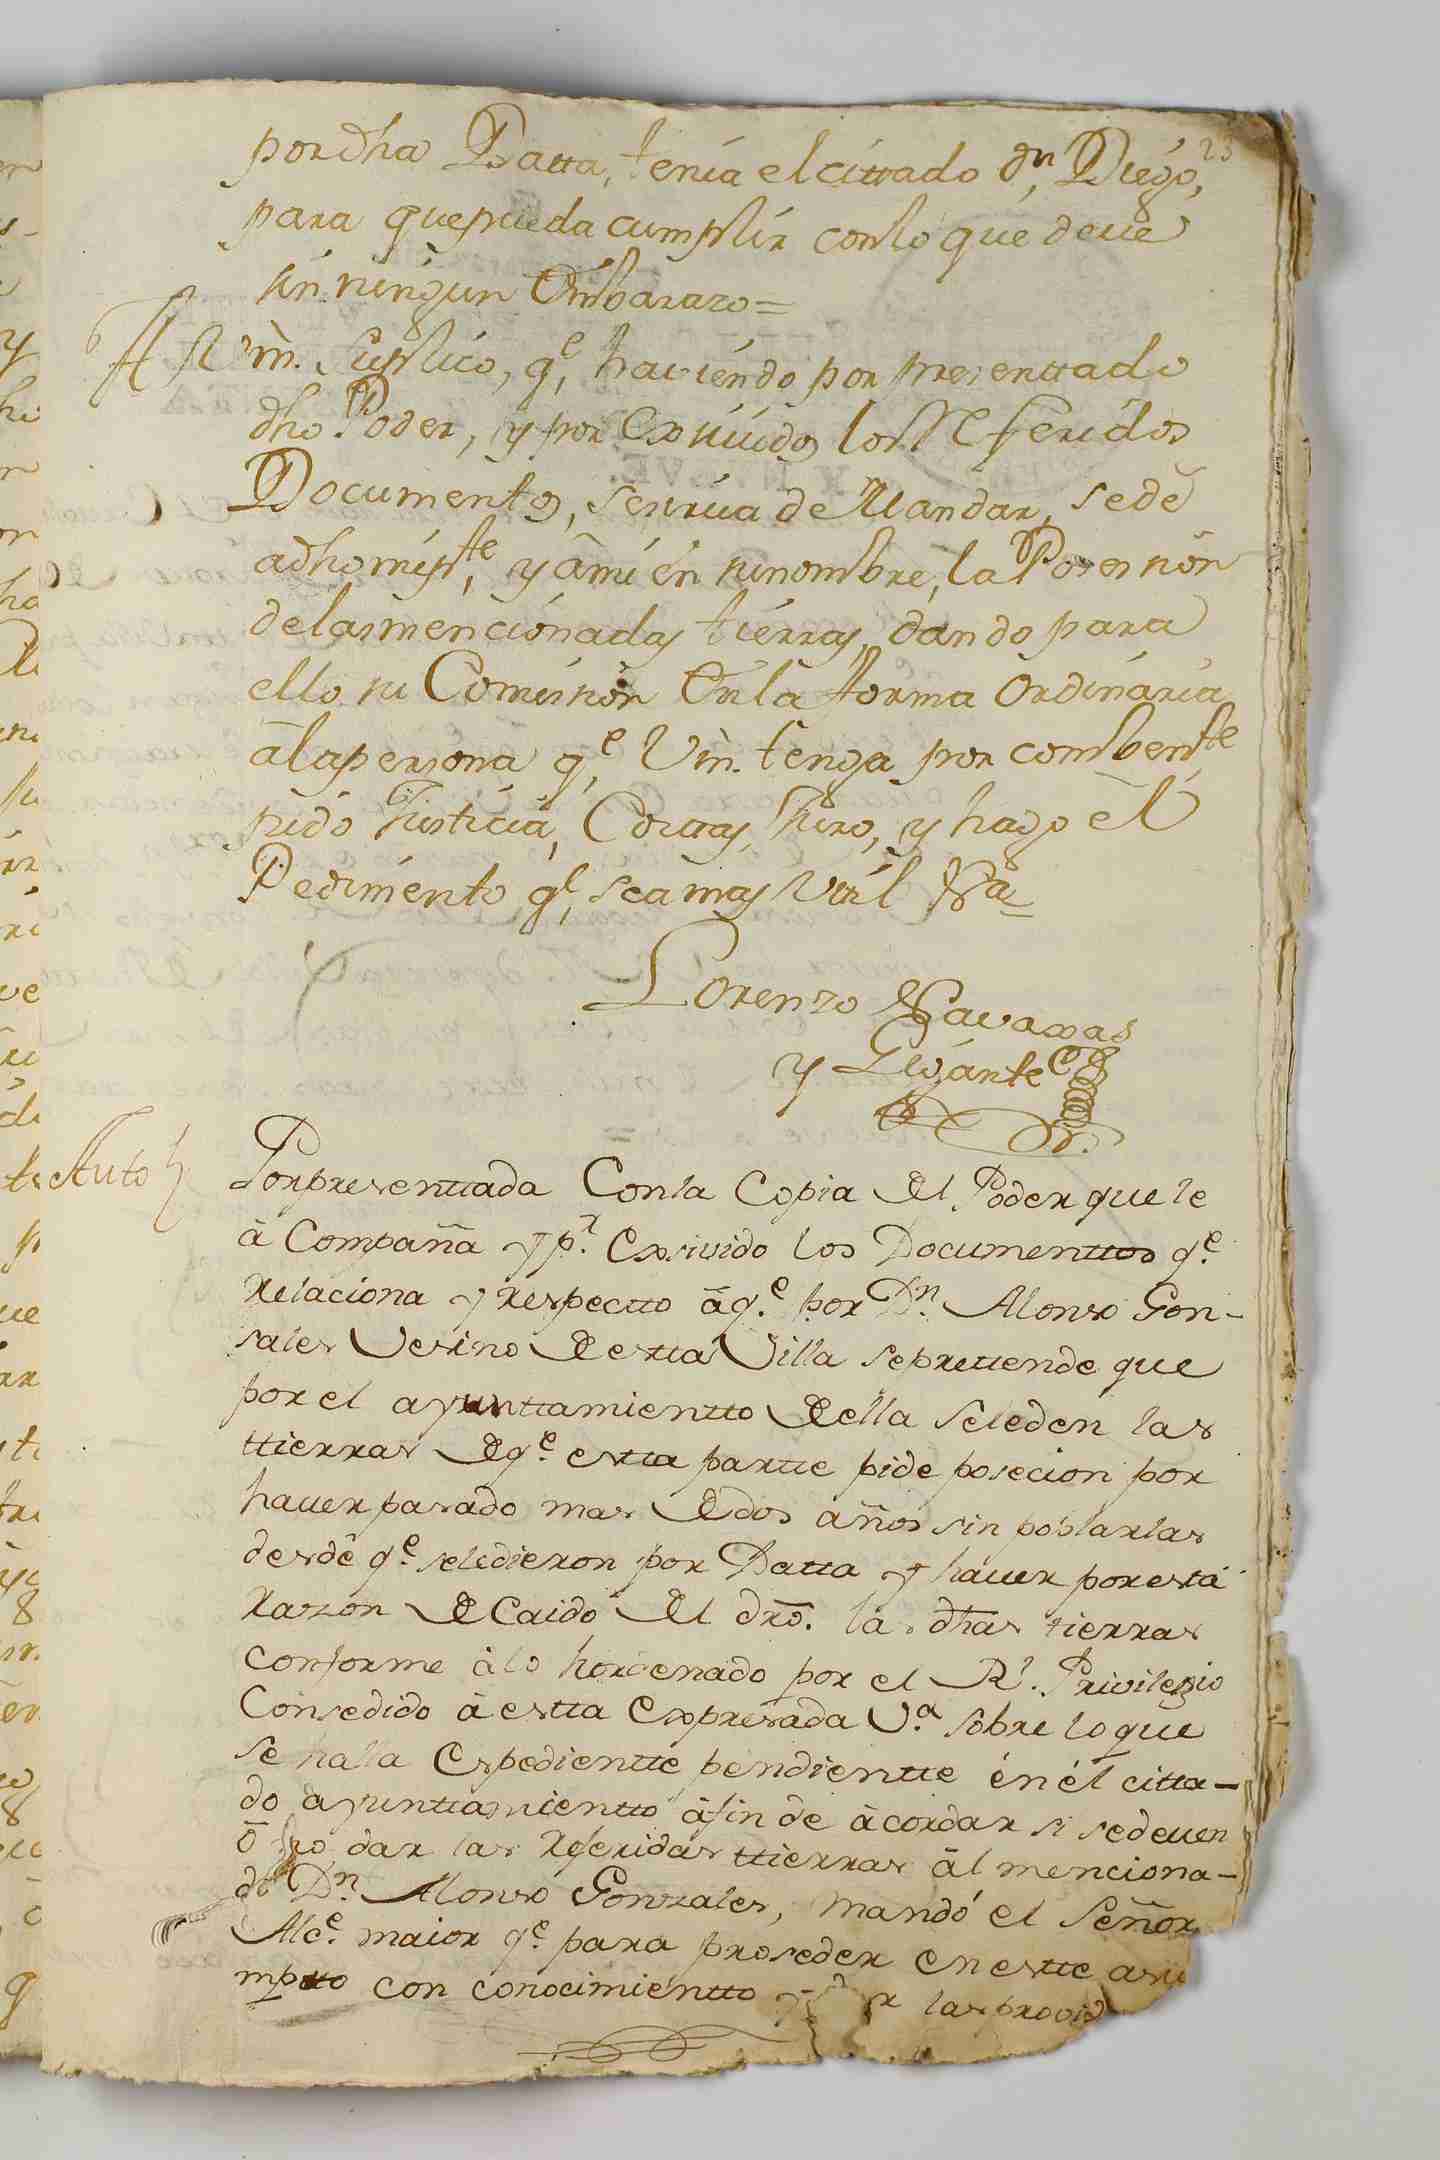 23
por dha Datta, tenia el cittado dn, Diego,
para que pueda cumplir con lo que deve
sin ningun Embarazo=
A Vm. Suplico, qe, haviendo por presenttado
dho Poder, y por Exsivido los Referidos
Documentos, se sirva de Mandar, se dê
a dho mi pte, y â mi en su nombre, la Posesion
de las mencionadas tierras, dando para
ello su Comision En la forma Ordinaria
â la persona qe, Vm. tenga por combente
pido Justicia, Costas, Juro, y hago el
Pedimento qe, sea mas Util Va
Lorenzo Navarras
y Ligante
Auto
Por presenttada Con la Copia del Poder que le
â Compaña y pr. Exsivido los Documenttos qe.
Relaciona y respectto â qe. por Dn. Alonso Gon-
sales Vesino de estta Villa se prettende que
por el ayunttamientto de ella se le den las
ttierras de qe. estta partte pide posecion por
haver pasado mas de dos años sin poblarlas
desde qe. se le dieron por Datta y haver por esta
Razon de Caido del dro. la dhas tierras
conforme â lo hordenado por el Rl. Privilegio
Consedido â estta Expresada Va. sobre lo que
se halla Espedientte pendientte én él citta-
do ayunttamientto âfin de âcordar si se deven
ô no dar las Referidas ttierras âl menciona-
do Dn. Alonso Gonzales, mandó el Señor
Alce. maior qe. para proseder en estte asu
mptto con conocimientto y las provid